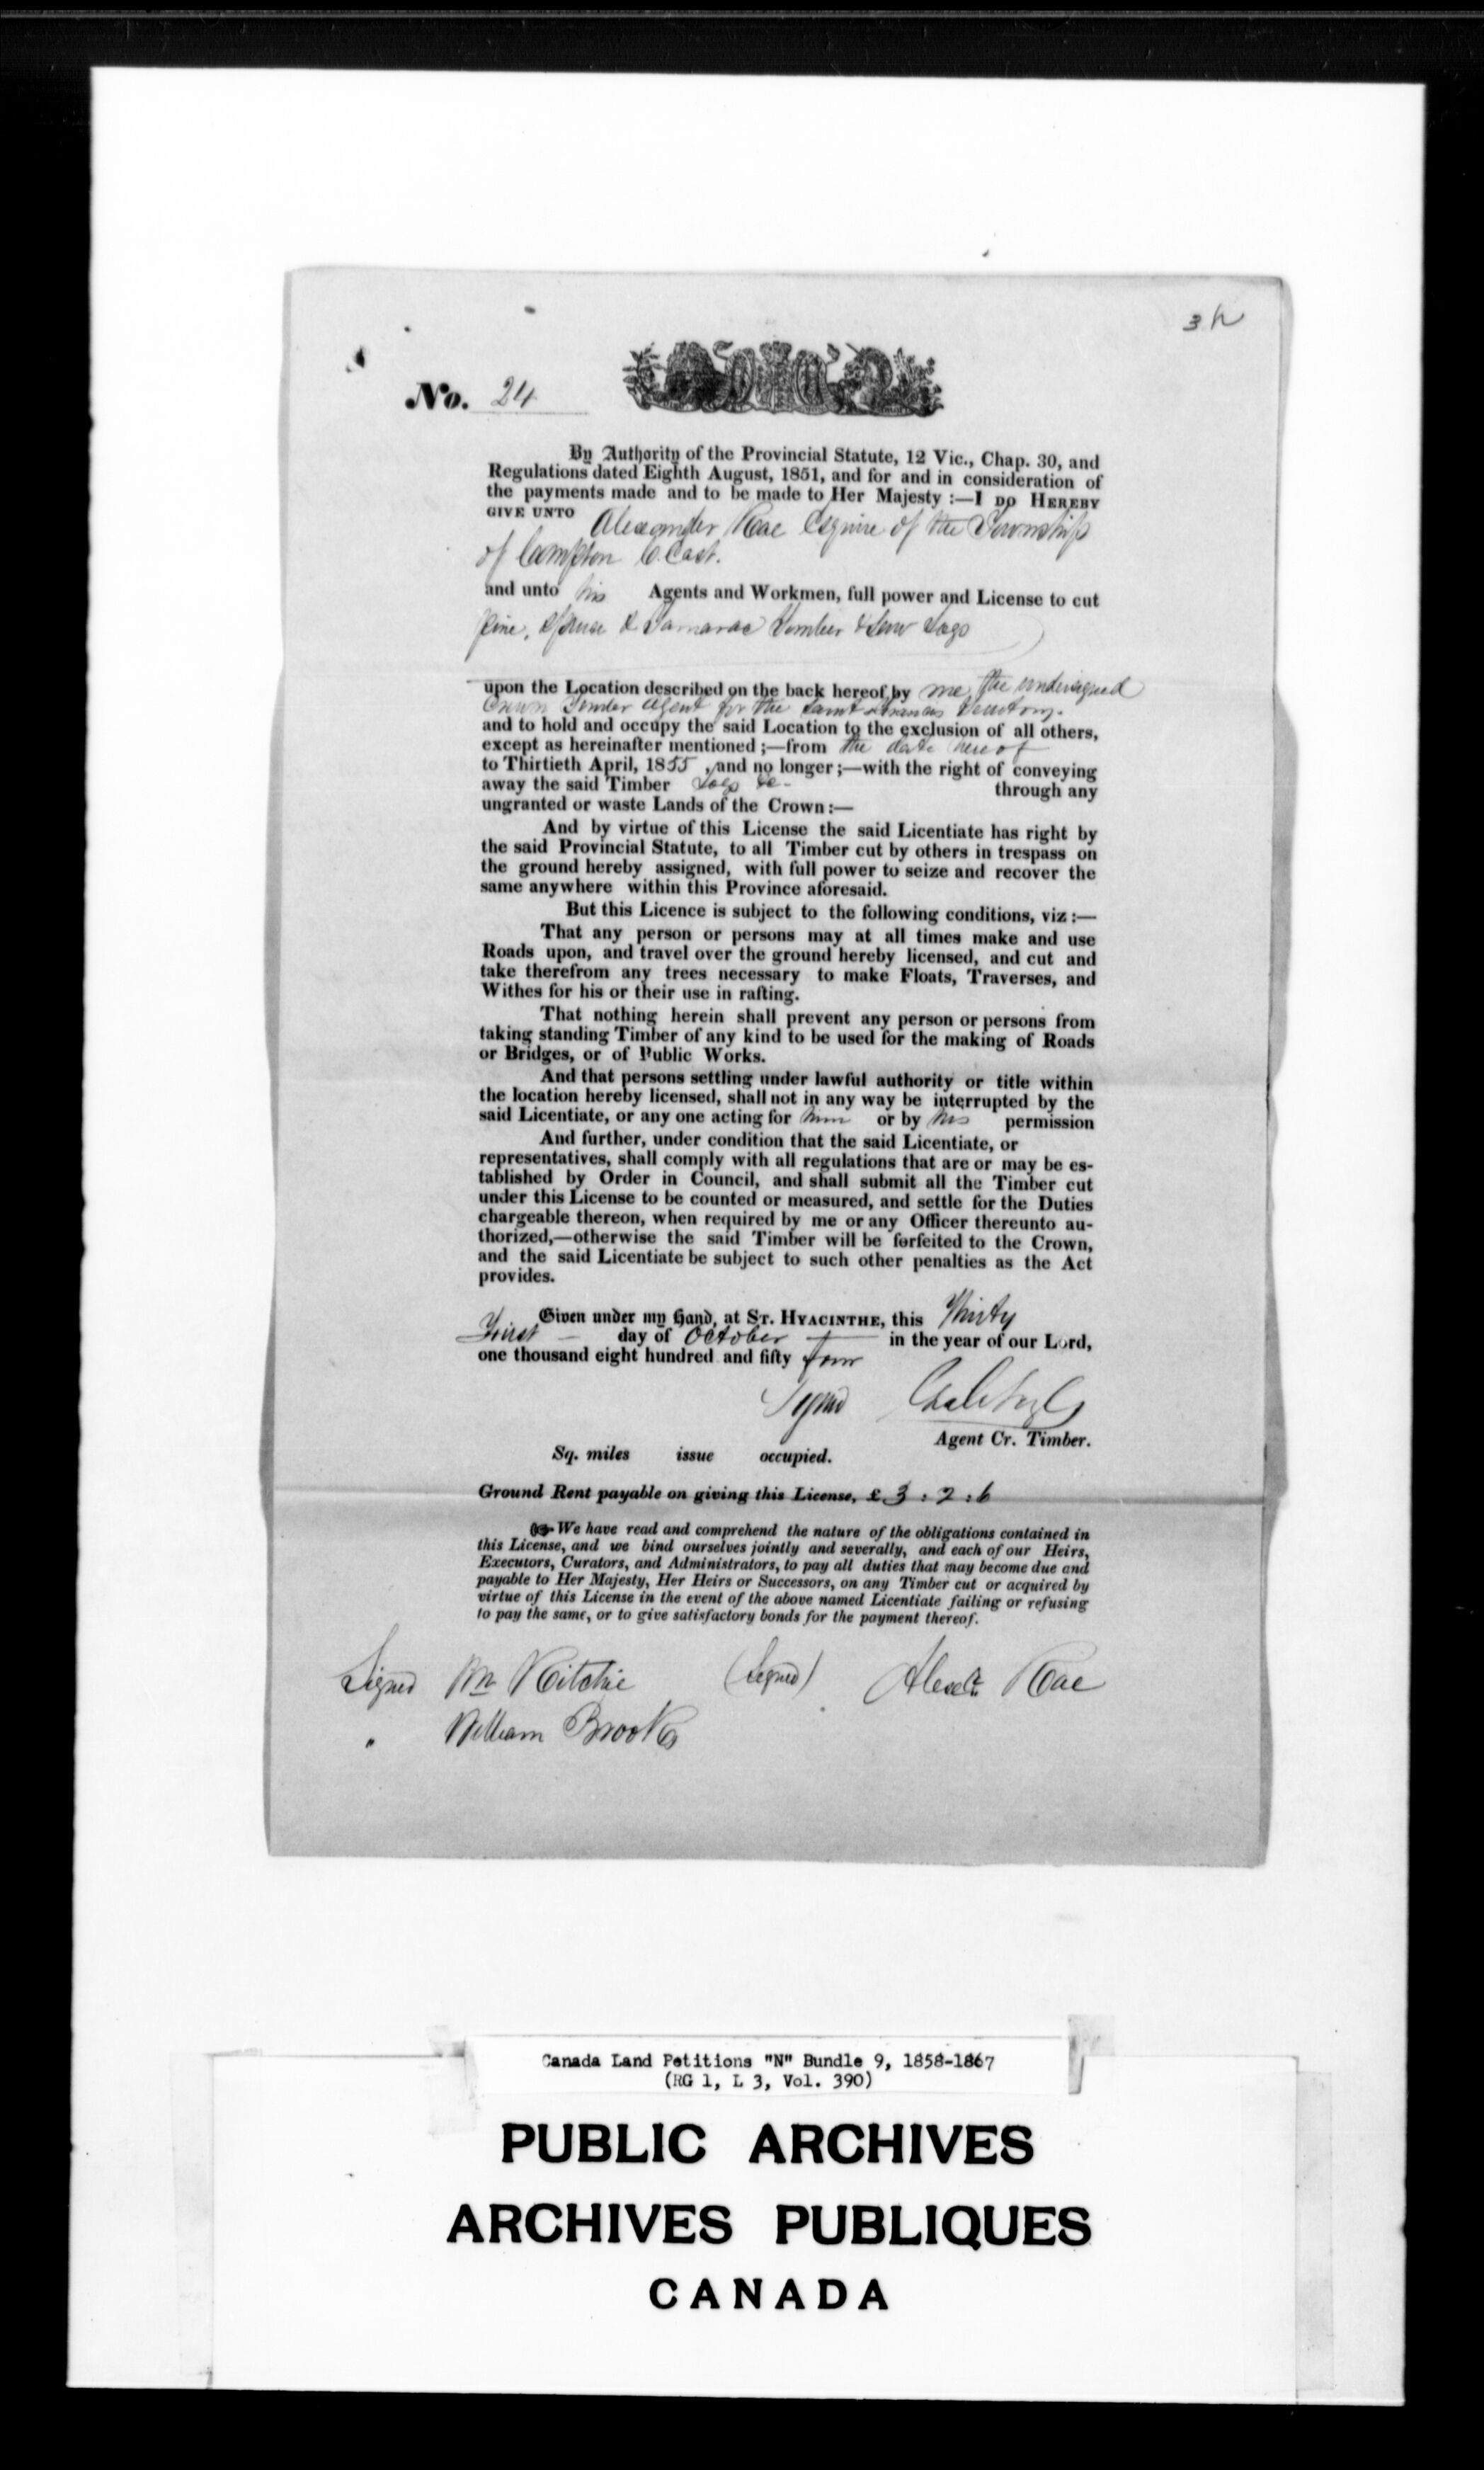 3h
No. 24
By Authority of the Provincial Statute, 12 Vic., Chap. 30, and
Regulations dated Eighth August, 1851, and for and in consideration of
the payments made and to be made to Her Majesty :—I DO HEREBY
GIVE UNTO Alexander Rae Esquire of the Township
of Compton C. East.
and unto his Agents and Workmen, full power and License to cut
Pine, Spruce & Tamarac Timber & Saw Logs
upon the Location described on the back hereof by me, the undersigned
Crown Timber Agent for the Saint Francis Territory.
and to hold and occupy the said Location to the exclusion of all others,
except as hereinafter mentioned ;—from the date hereof
to Thirtieth April, 1855, and no longer ;—with the right of conveying
away the said Timber Logs &c- through any
ungranted or waste Lands of the Crown :—
And by virtue of this License the said Licentiate has right by
the said Provincial Statute, to all Timber cut by others in trespass on
the ground hereby assigned, with full power to seize and recover the
same anywhere within this Province aforesaid.
But this Licence is subject to the following conditions, viz :—
That any person or persons may at all times make and use
Roads upon, and travel over the ground hereby licensed, and cut and
take therefrom any trees necessary to make Floats, Traverses, and
Withes for his or their use in rafting.
That nothing herein shall prevent any person or persons from
taking standing Timber of any kind to be used for the making of Roads
or Bridges, or of Public Works.
And that persons settling under lawful authority or title within
the location hereby licensed, shall not in any way be interrupted by the
said Licentiate, or any one acting for him or by his permission
And further, under condition that the said Licentiate, or
representatives, shall comply with all regulations that are or may be es-
tablished by Order in Council, and shall submit all the Timber cut
under this License to be counted or measured, and settle for the Duties
chargeable thereon, when required by me or any Officer thereunto au-
thorized,—otherwise the said Timber will be forfeited to the Crown,
and the said Licentiate be subject to such other penalties as the Act
provides.
Given under my Hand, at ST. HYACINTHE, this Thirty
First — day of October — in the year of our Lord,
one thousand eight hundred and fifty four
Signed
Agent Cr. Timber.
Sq. miles issue occupied.
Ground Rent payable on giving this License, £ 3 : 2 : 6
We have read and comprehend the nature of the obligations contained in
this License, and we bind ourselves jointly and severally, and each of our Heirs,
Executors, Curators, and Administrators, to pay all duties that may become due and
payable to Her Majesty, Her Heirs or Successors, on any Timber cut or acquired by
virtue of this License in the event of the above named Licentiate failing or refusing
to pay the same, or to give satisfactory bonds for the payment thereof.
Signed Wm Ritchie (Signed) Alexdr. Rae
" William Brooks
Canada Land Petitions "N" Bundle 9, 1858-1867
(RG 1, L 3, Vol. 390)
PUBLIC ARCHIVES
ARCHIVES PUBLIQUES
CANADA